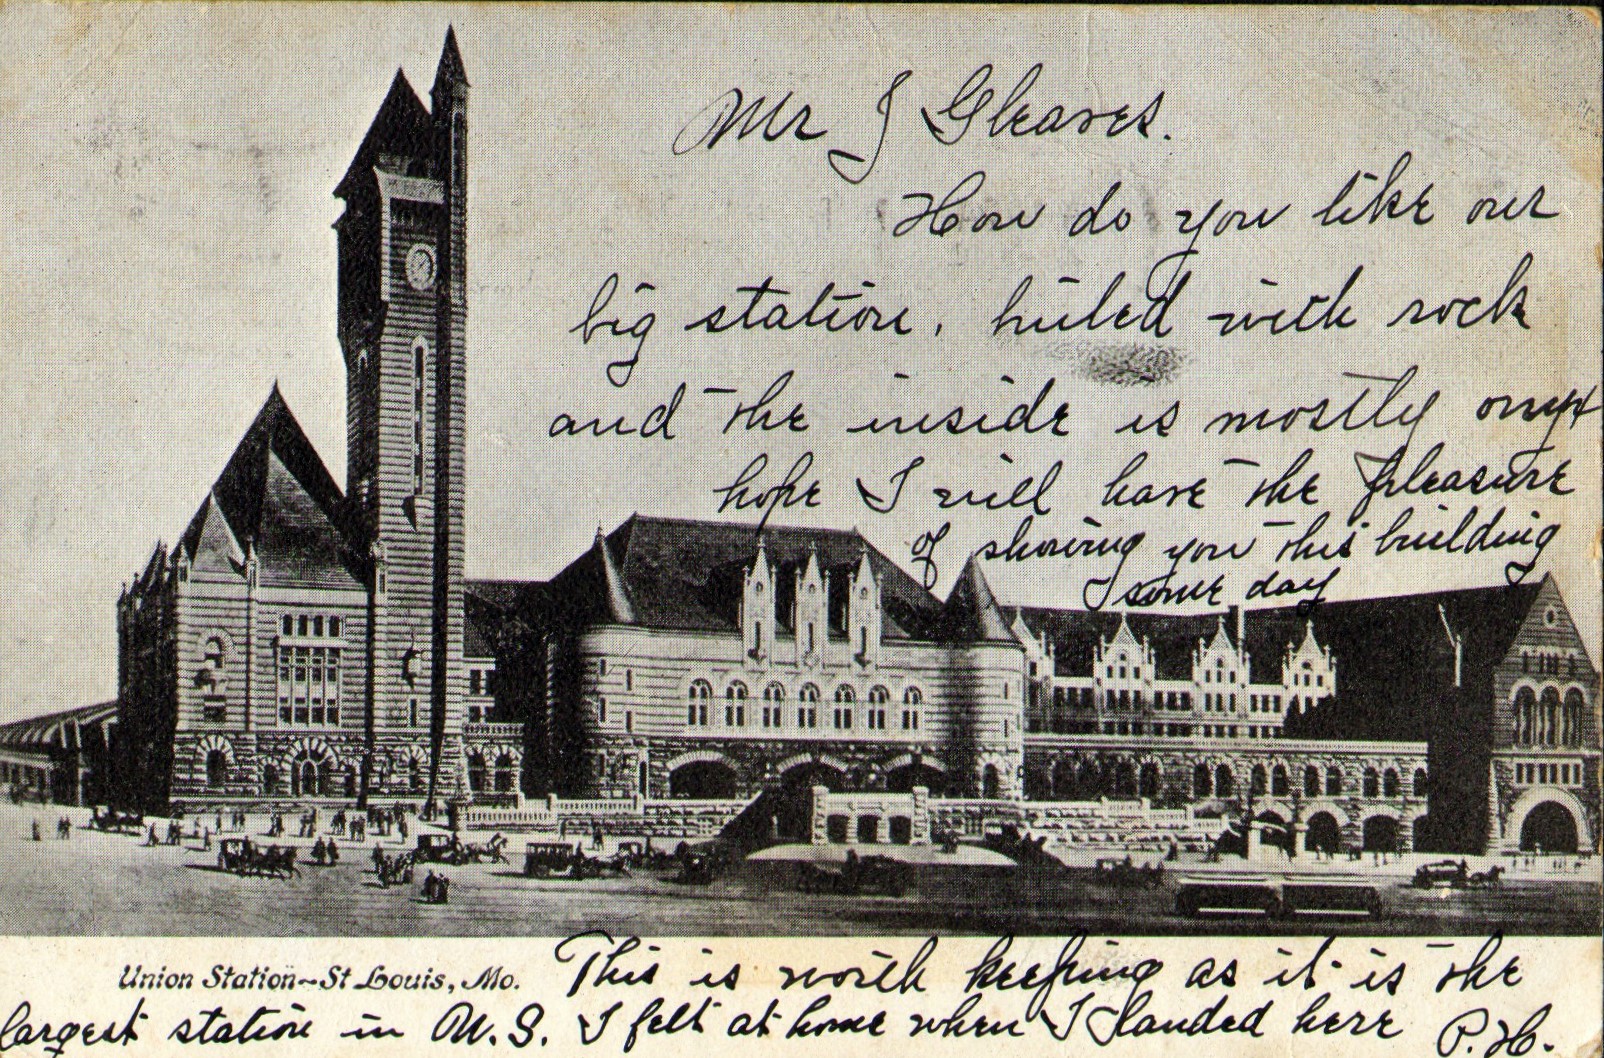 Mr J Gleaves.
How do you like our
big station, builed with rock
and the inside is mostly onyx
hope I will have the pleasure
of showing you this building
some day
Union Station~St Louis, Mo.
This is worth keeping as it is the
largest station in U.S. I felt at home when I landed here P.H.